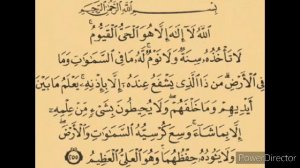 بِسْمِ اللَّهِ الرَّحْمَٰنِ الرَّحِيمِ
اللَّهُ لَا إِلَٰهَ إِلَّا هُوَ الْحَيُّ الْقَيُّومُ
لَا تَأْخُذُهُ سِنَةٌ وَلَا نَوْمٌ لَهُ مَا فِي السَّمَٰوَٰتِ وَمَا
فِي الْأَرْضِ مَنْ ذَا الَّذِي يَشْفَعُ عِنْدَهُ إِلَّا بِإِذْنِهِ يَعْلَمُ مَا بَيْنَ
أَيْدِيهِمْ وَمَا خَلْفَهُمْ وَلَا يُحِيطُونَ بِشَيْءٍ مِنْ عِلْمِهِ
إِلَّا بِمَا شَاءَ وَسِعَ كُرْسِيُّهُ السَّمَٰوَٰتِ وَالْأَرْضَ
وَلَا يَئُودُهُ حِفْظُهُمَا وَهُوَ الْعَلِيُّ الْعَظِيمُ ٢٥٥
PowerDirector